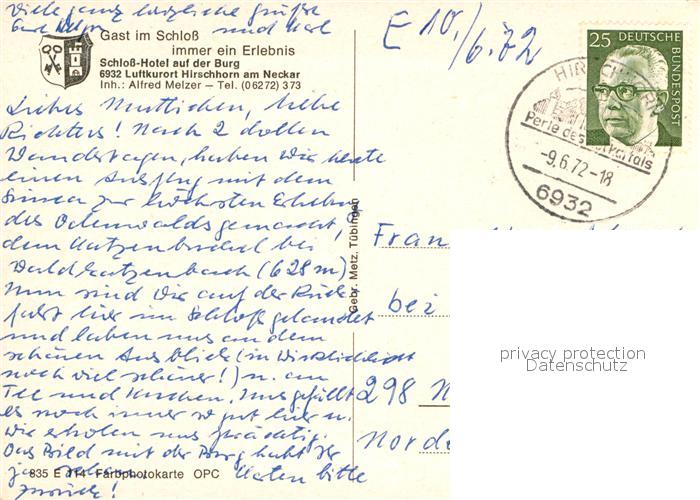 Viele ganz herzliche Grüße
und Karl
E 10./6.72
Gast im Schloß
immer ein Erlebnis
Schloß-Hotel auf der Burg
6932 Luftkurort Hirschhorn am Neckar
Inh.: Alfred Melzer – Tel. (06272) 373
25 DEUTSCHE BUNDESPOST
HIRSCHHORN
Perle des Neckartals
-9.6.72-18
6932
Liebes Muttichen, liebe
Richters! Nach 2 tollen
Wandertagen, haben wir heute
einen Ausflug mit dem
zur höchsten Erhebung
des Odenwalds gemacht,
dem Katzenbuckel bei
Waldkatzenbach (628 m)
Nun sind wir auf der Rück-
fahrt hier im Schloß gelandet
und laben uns an dem
schönen Ausblick (in Wirklichkeit
noch viel schöner!) u. am
Tee und Kuchen. Uns gefällt
es noch immer so gut hier u.
wir erholen uns prächtig.
Das Bild mit der Burg habt Ihr
ja schon, Karten bitte
zurück!
Gebr. Metz, Tübingen
Fran
bei
298 N
Norde
privacy protection
Datenschutz
835 E 114 Farbphotokarte OPC